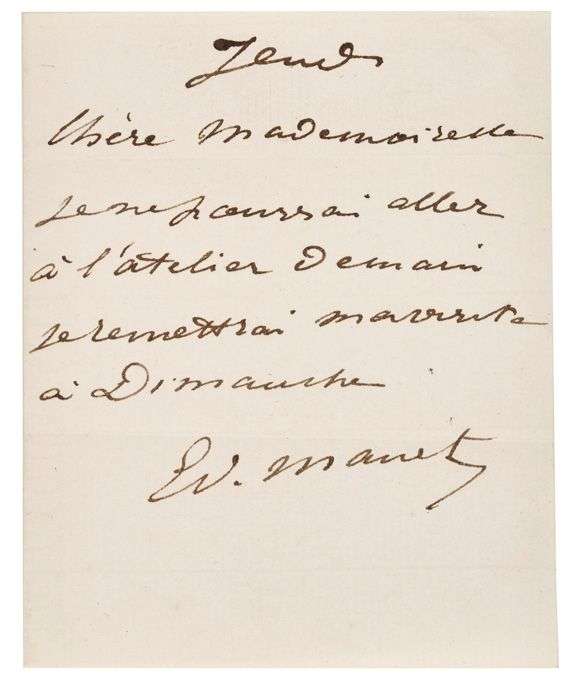 Jeudi
Chère Mademoiselle
je ne pourrai aller
à l'atelier demain
je remettrai ma visite
à Dimanche
Ed. Manet